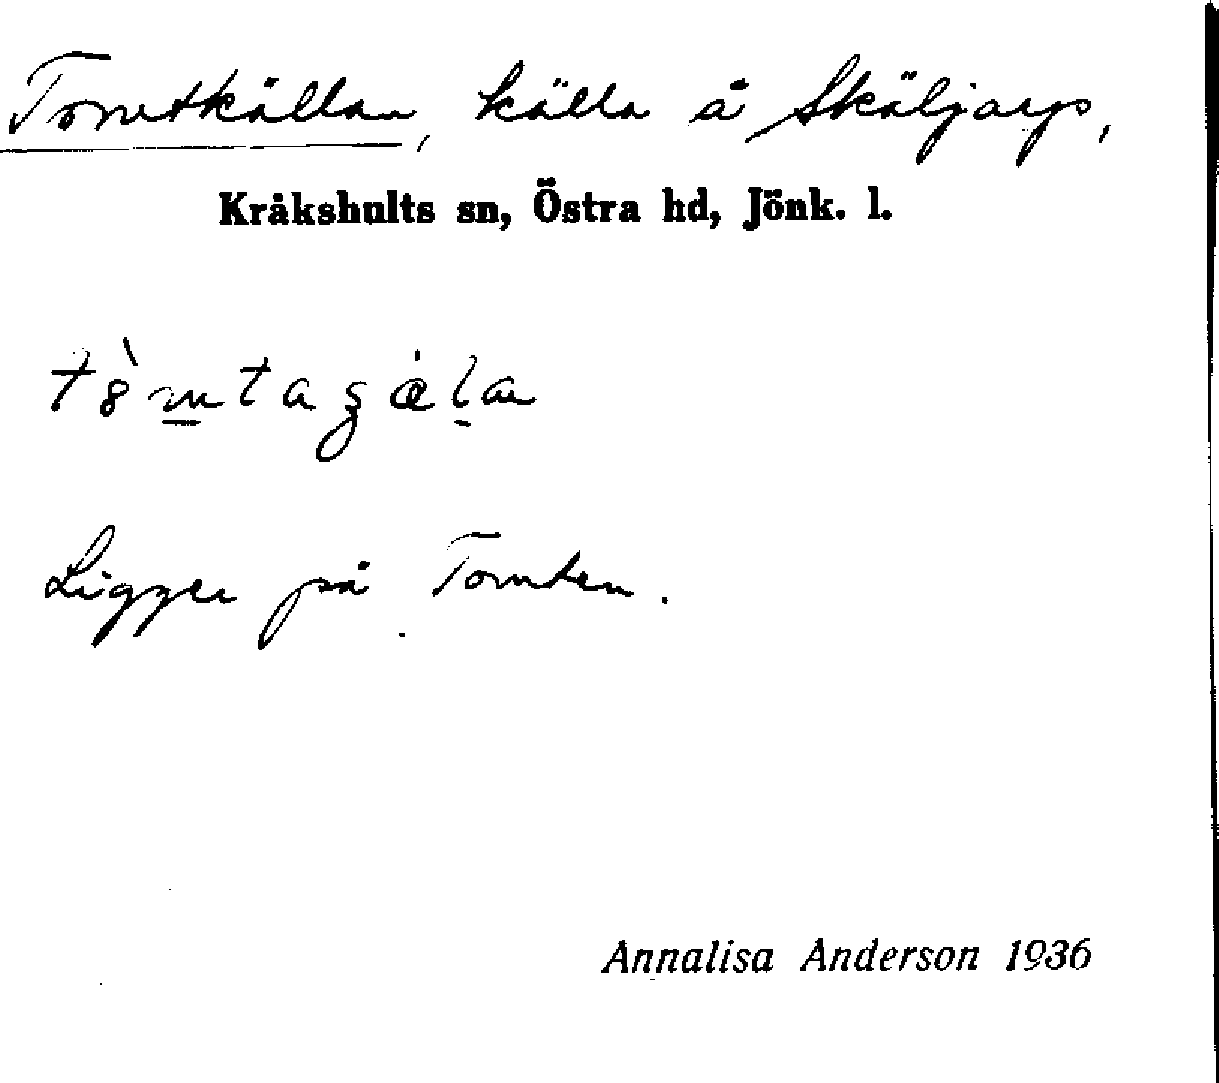 Tomtkällan, källa å Skäljarp,
Kråkshults sn, Östra hd, Jönk. l.
Ligger på Tomten.
Annalisa Anderson 1936